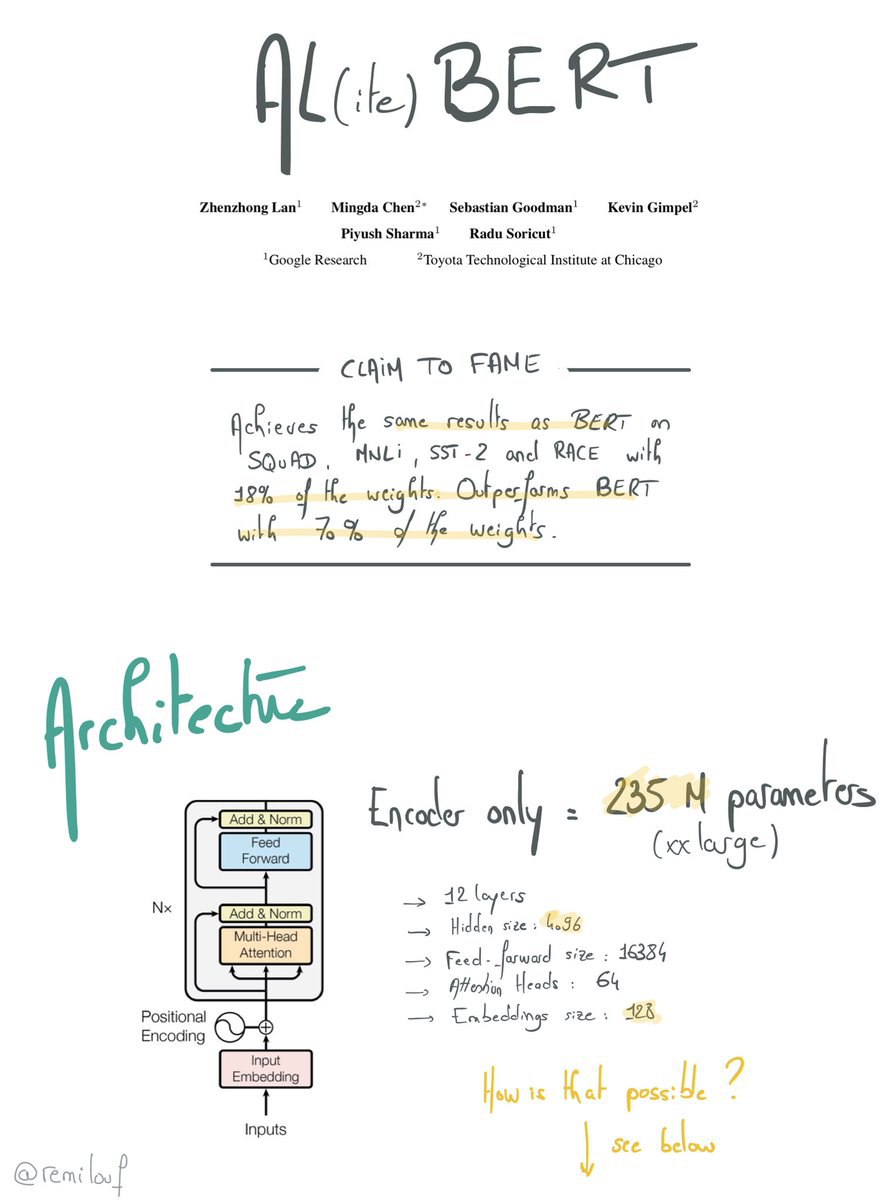 AL(ite) BERT
Zhenzhong Lan¹ Mingda Chen²* Sebastian Goodman¹ Kevin Gimpel²
Piyush Sharma¹ Radu Soricut¹
¹Google Research ²Toyota Technological Institute at Chicago
CLAIM TO FAME
Achieves the same results as BERT on
SQUAD, MNLI, SST-2 and RACE with
18% of the weights. Outperforms BERT
with 70% of the weights.
Architecture
Encoder only = 235 M parameters
(xxlarge)
→ 12 layers
→ Hidden size : 4096
→ Feed-forward size : 16384
→ Attention Heads : 64
→ Embeddings size : 128
Add & Norm
Feed
Forward
Nx
Add & Norm
Multi-Head
Attention
Positional
Encoding
Input
Embedding
Inputs
How is that possible ?
↓ see below
@remilouf